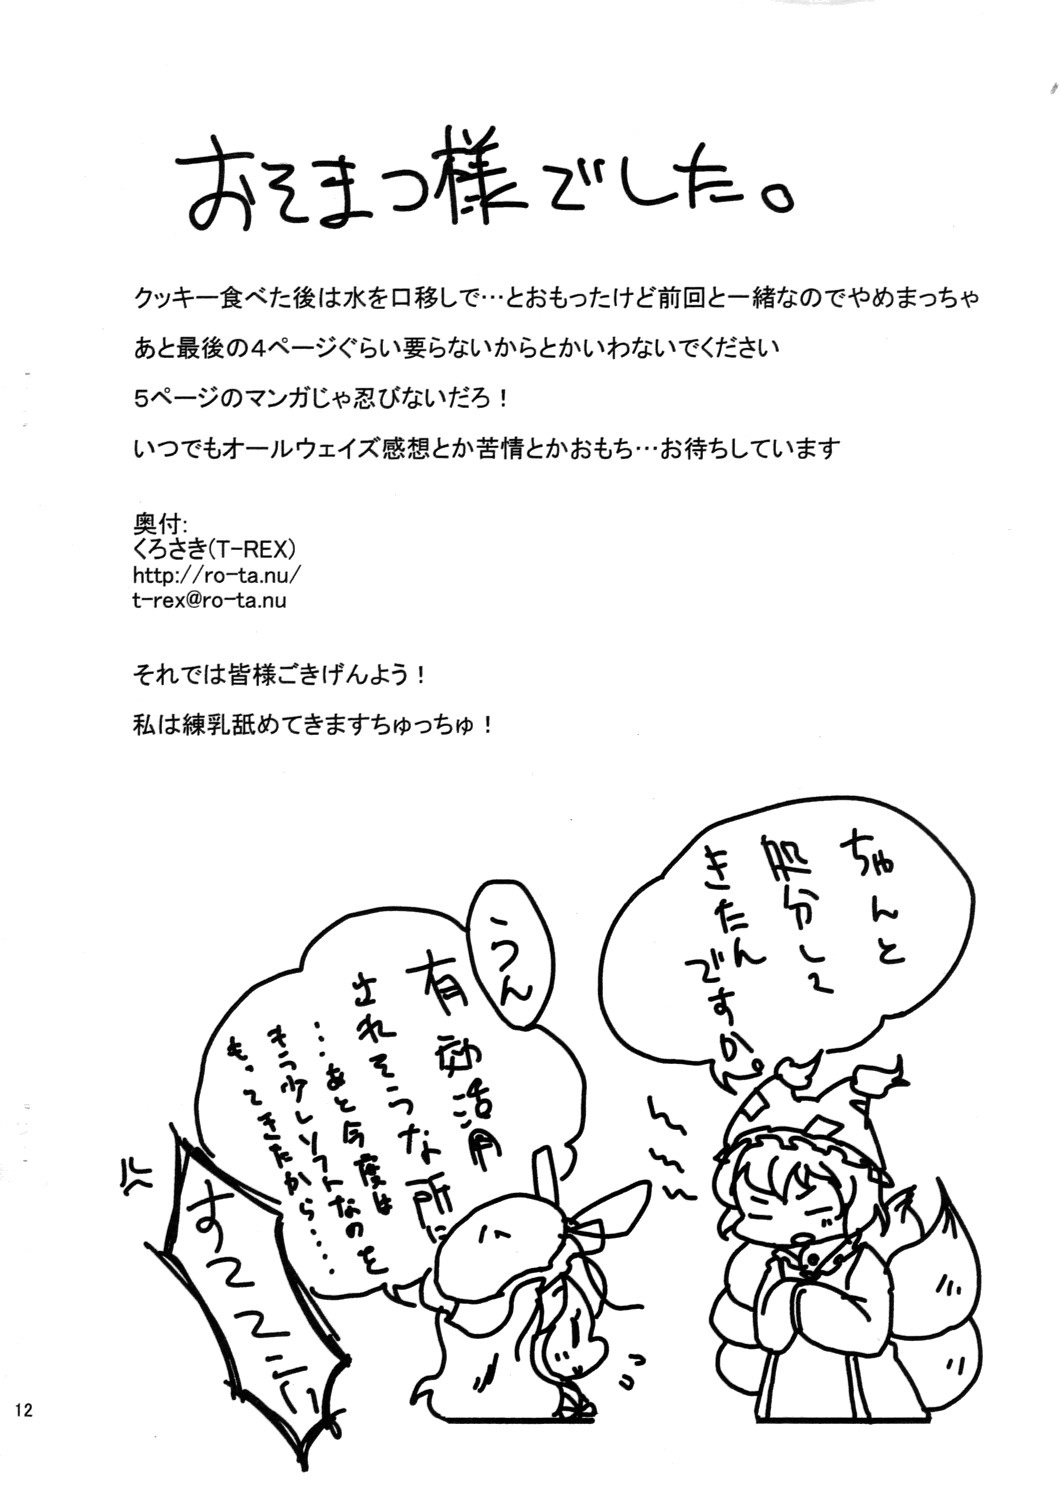 おそまつ様でした。
クッキー食べた後は水を口移しで…とおもったけど前回と一緒なのでやめまっちゃ
あと最後の4ページぐらい要らないからとかいわないでください
5ページのマンガじゃ忍びないだろ!
いつでもオールウェイズ感想とか苦情とかおもち…お待ちしています
奥付:
くろさき(T-REX)
http://ro-ta.nu/
t-rex@ro-ta.nu
それでは皆様ごきげんよう!
私は練乳舐めてきますちゅっちゅ!
ちゃんと
処分して
きたん
ですか。
うん
有効活用
出来そうな所に
…あと今度は
もう少しソフトなのを
もってきたから・・・・
すててこい
12